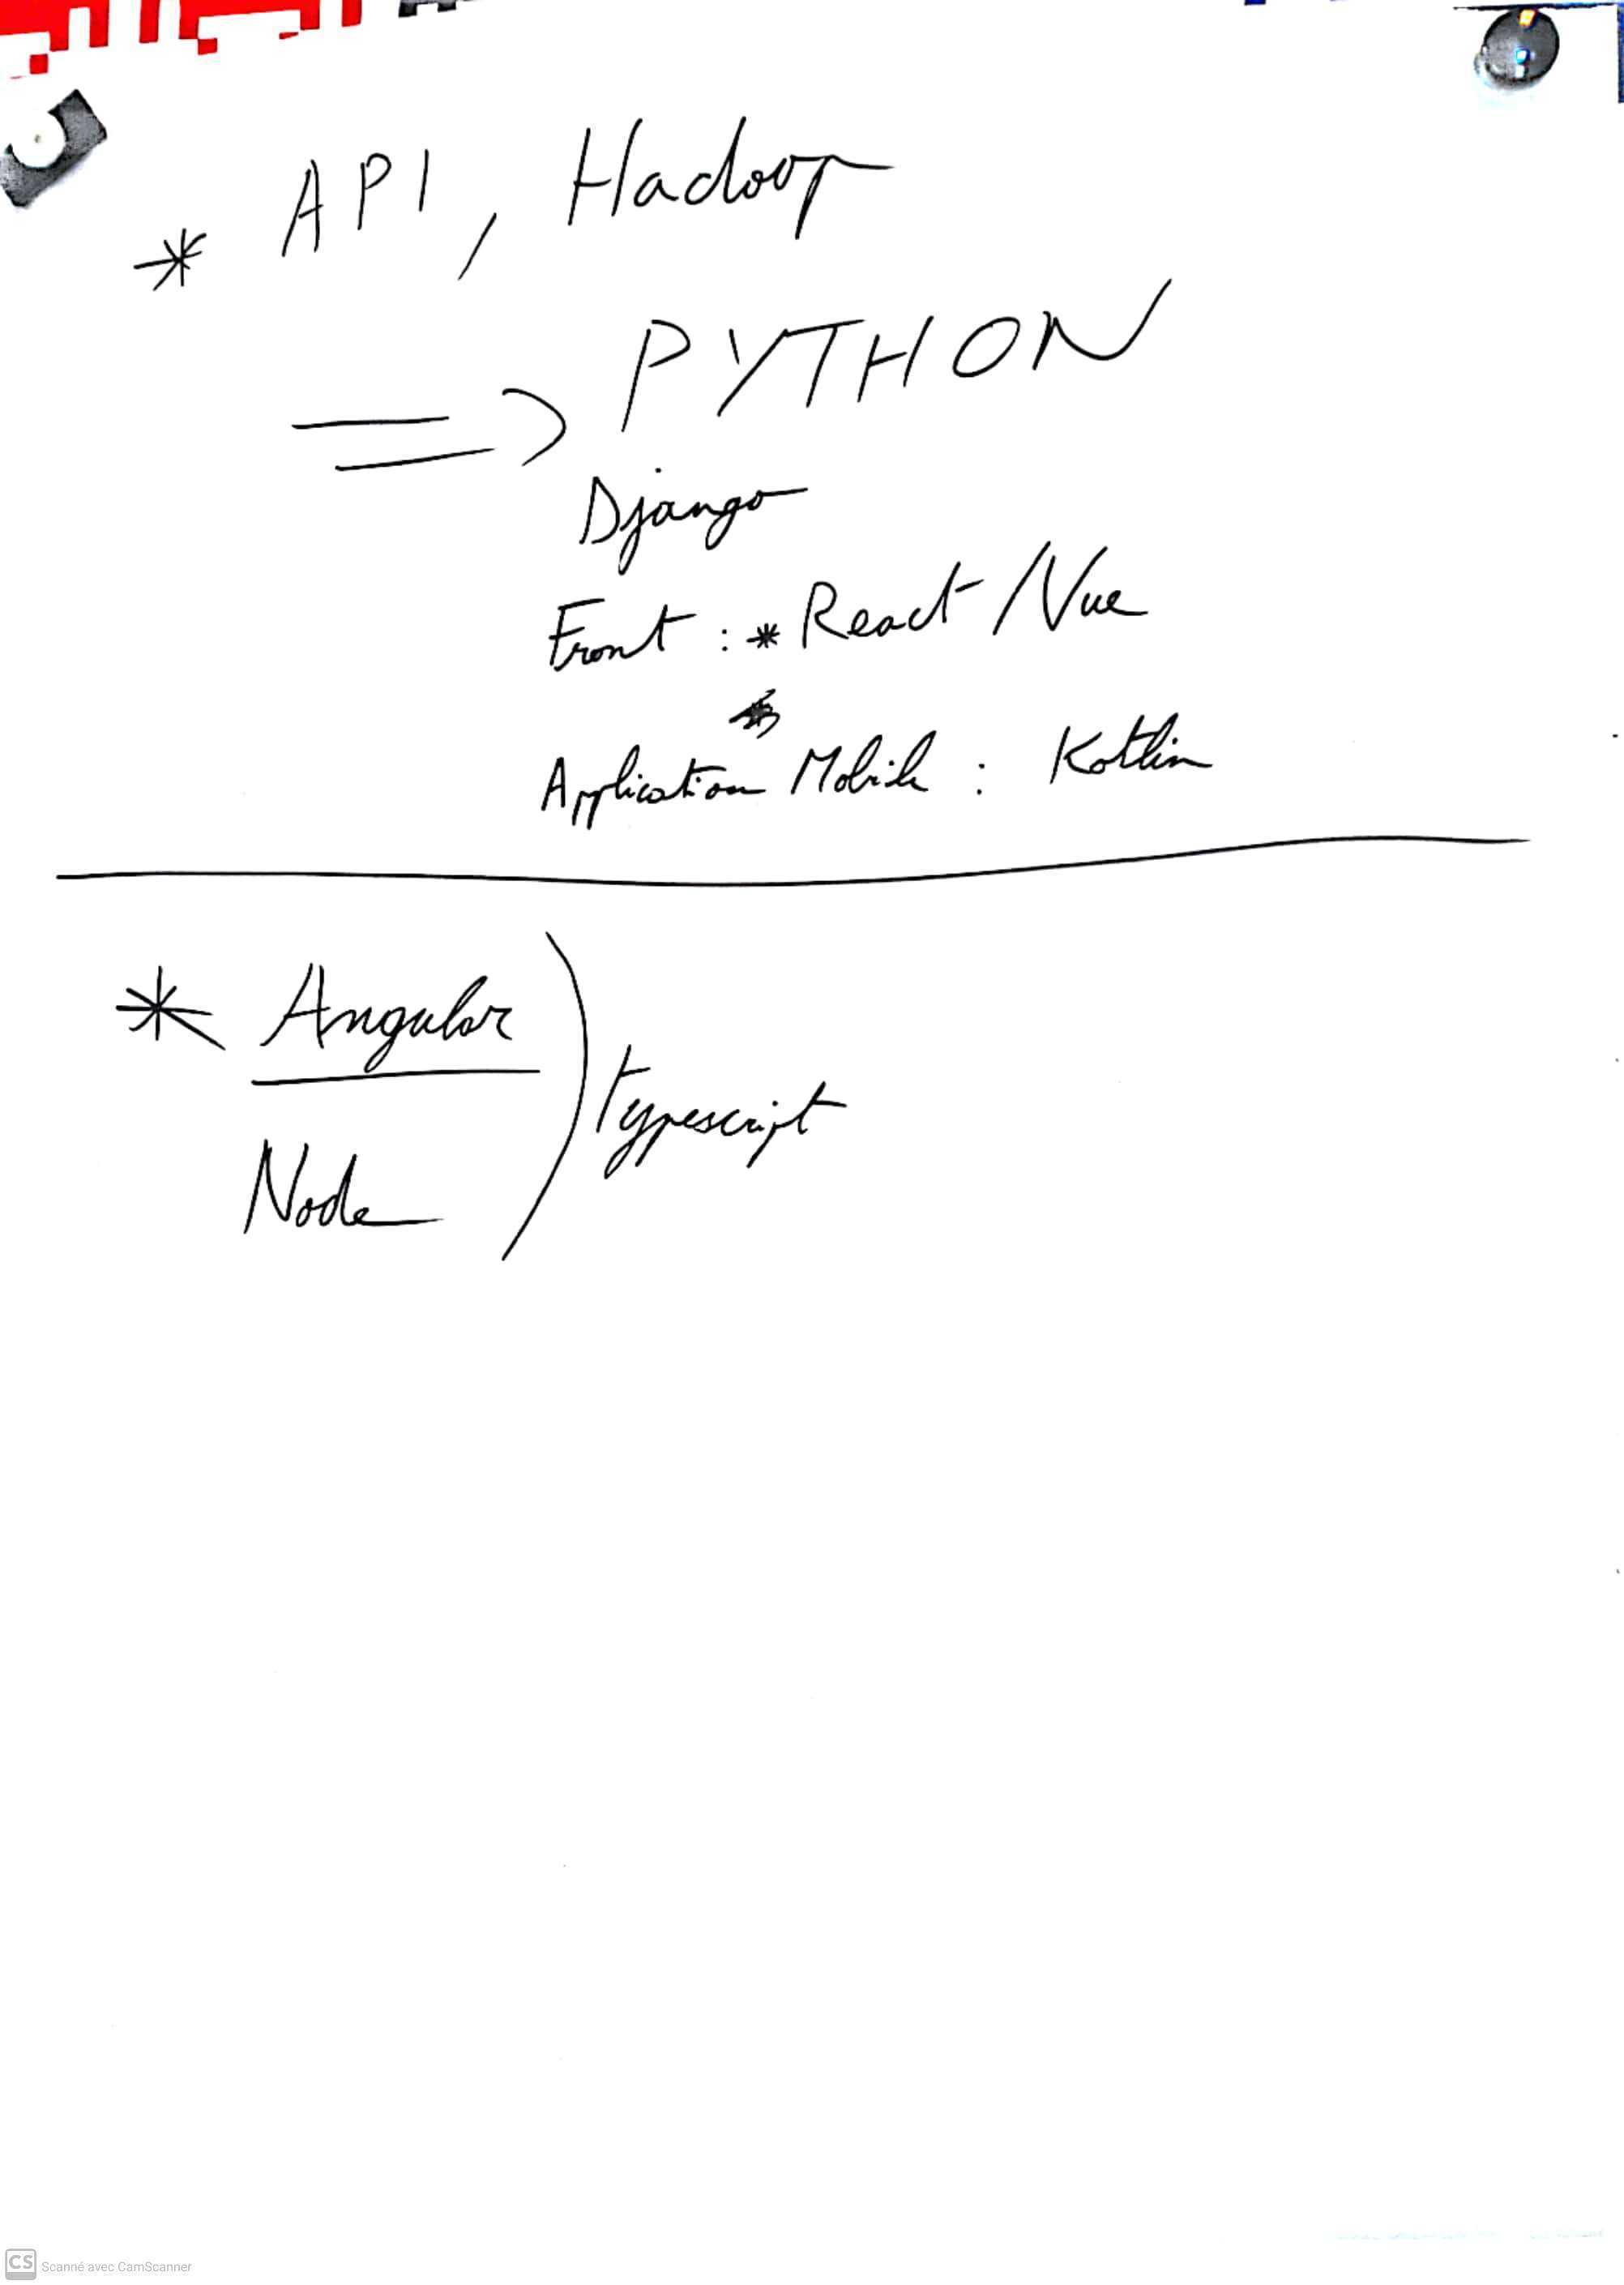 * API, Hadoop
=> PYTHON
Django
Front : * React / Vue
Application Mobile : Kotlin
* Angular
Typescript
Node
CS Scanné avec CamScanner